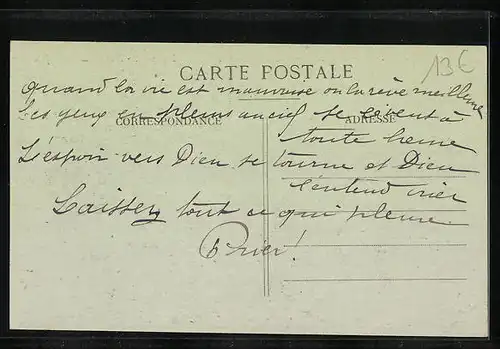 CARTE POSTALE
13€
Quand la vie est mauvaise on la rêve meilleure
Les yeux en pleurs au ciel se lèvent à
CORRESPONDANCE
ADRESSE
toute heure
L'espoir vers Dieu se tourne et Dieu
l'entend crier
Laissez tout ce qui pleure
Prier!